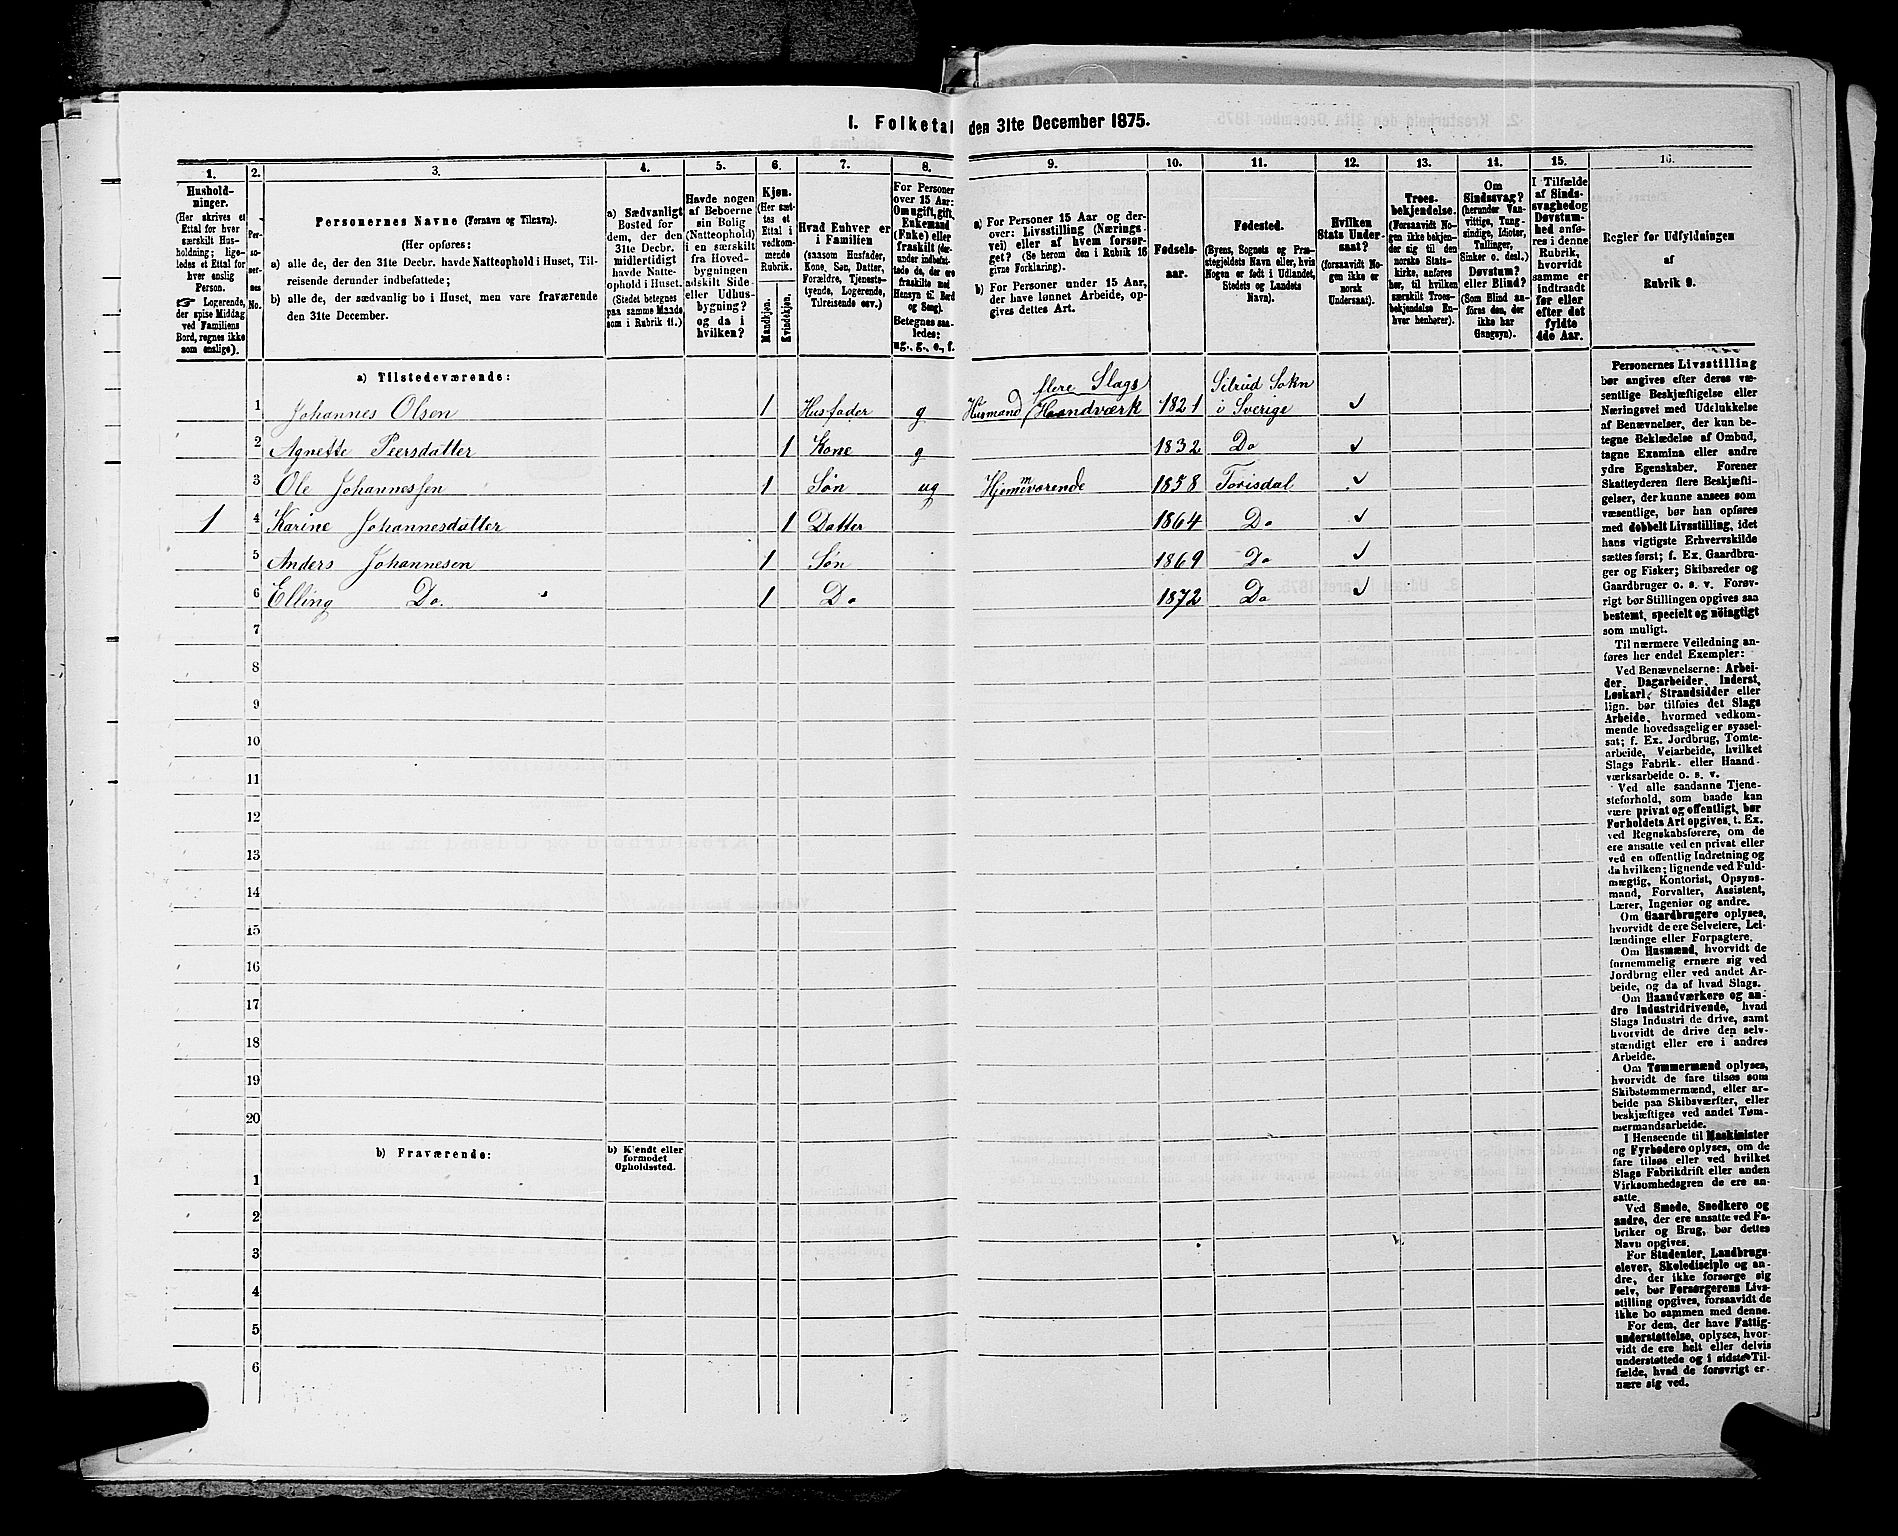 I. Folketal den 31te December 1875.
1. 2. 3. 4. 5. 6. 7. 8. 9. 10. 11. 12. 13. 14. 15. 16.
Hushold-
ninger.
(Her skrives et
Ettal for hver
særskilt Hus-
holdning; lige-
ledes et Ettal for
hver enslig
Person.
☞ Logerende,
der spise Middag
ved Familiens
Bord, regnes ikke
som enslige).
Per-
so-
ner-
nes
No.
Personernes Navne (Fornavn og Tilnavn).
(Her opføres:
a) alle de, der den 31te Decbr. havde Natteophold i Huset, Til-
reisende derunder indbefattede;
b) alle de, der sædvanlig bo i Huset, men vare fraværende
den 31te December.
a) Sædvanligt
Bosted for
dem, der den
31te Decbr.
midlertidigt
havde Natte-
ophold i Huset.
(Stedet betegnes
paa samme Maade
som i Rubrik 11.)
Havde nogen
af Beboerne
sin Bolig
(Natteophold)
i en særskilt
fra Hoved-
bygningen
adskilt Side-
eller Udhus-
bygning?
og da i
hvilken?
Kjøn.
(Her sæt-
tes et
Ettal i
vedkom-
mende
Rubrik.
Mandkjøn.
Kvindekjøn.
Hvad Enhver er
i Familien
(saasom Husfader,
Kone, Søn, Datter,
Forældre, Tjeneste-
tyende, Logerende,
Tilreisende osv.)
For Personer
over 15 Aar:
Om ugift, gift,
Enkemand
(Enke) eller
fraskilt (der-
under indbefat-
tede de, der ere
fraskilte med
Hensyn til Bord
og Seng).
Betegnes saa-
ledes:
ug., g., e., f.
a) For Personer 15 Aar og der-
over: Livsstilling (Nærings-
vei) eller af hvem forsør-
get? (Se herom den i Rubrik 16
givne Forklaring).
b) For Personer under 15 Aar,
der have lønnet Arbeide, op-
gives dettes Art.
Fødsels-
aar.
Fødested.
(Byens, Sognets og Præ-
stegjeldets Navn eller, hvis
Nogen er født i Udlandet,
Stedets og Landets
Navn).
Hvilken
Stats Under-
saat?
(forsaavidt No-
gen ikke er
norsk
Undersaat).
Troes-
bekjendelse.
(Forsaavidt No-
gen ikke bekjen-
der sig til den
norske Stats-
kirke, anføres
her, til hvilken
særskilt Troes-
bekjendelse En-
hver henhører).
Om
Sindssvag?
(herunder Van-
vittige, Tung-
sindige, Idioter,
Tullinger,
Sinker o. desl.)
Døvstum?
eller Blind?
(Som Blind an-
føres den, der
ikke har
Gangsyn).
I Tilfælde
af Sinds-
svaghed og
Døvstum-
hed anfø-
res i denne
Rubrik,
hvorvidt
samme er
indtraadt
før eller
efter det
fyldte
4de Aar.
Regler for Udfyldningen
af
Rubrik 9.
a) Tilstedeværende:
flere Slags
i Sverige
1 Johannes Olsen 1 Husfader g Husmand Haandværk 1821
2 Agnette Peersdatter 1 Kone g 1832 Do
3 Ole Johannessen 1 Søn ug Hjemmværende 1858 Torisdal
1 4 Karine Johannesdatter 1 Datter 1864 Do
5 Anders Johannesen 1 Søn 1869 Do
6 Elling Do. 1 Do 1872 Do
7
8
9
10
11
12
13
14
15
16
17
18
19
20
b) Fraværende:
b) Kjendt eller
formodet
Opholdssted.
1
2
3
4
5
6
Personernes Livsstilling
bør angives efter deres væ-
sentlige Beskjæftigelse eller
Næringsvei med Udelukkelse
af Benævnelser, der kun be-
tegne Beklædelse af Ombud,
tagne Examina eller andre
ydre Egenskaber. Forener
Skatteyderen flere Beskjæfti-
gelser, der kunne ansees som
væsentlige, bør han opføres
med dobbelt Livsstilling, idet
hans vigtigste Erhvervskilde
sættes først; f. Ex. Gaardbru-
ger og Fisker; Skibsreder og
Gaardbruger o. s. v. Forøv-
rigt bør Stillingen opgives saa
bestemt, specielt og nöiagtigt
som muligt.
Til nærmere Veiledning an-
føres her endel Exempler:
Ved Benævnelserne: Arbei-
der, Dagarbeider, Inderst,
Løskarl, Strandsidder eller
lign. bør tilføies det Slags
Arbeide, hvormed vedkom-
mende hovedsagelig er syssel-
sat; f. Ex. Jordbrug, Tomte-
arbeide, Veiarbeide, hvilket
Slags Fabrik- eller Haand-
værksarbeide o. s. v.
Ved alle saadanne Tjene-
steforhold, som baade kan
være privat og offentligt, bør
Forholdets Art opgives, t. Ex.
ved Regnskabsførere, om de
ere ansatte ved en privat eller
ved en offentlig Indretning og
da hvilken; lignende ved Fuld-
mægtig, Kontorist, Opsyns-
mand, Forvalter, Assistent,
Lærer, Ingeniør og andre.
Om Gaardbrugere oplyses,
hvorvidt de ere Selveiere, Lei-
lændinge eller Forpagtere.
Om Husmænd, hvorvidt de
fornemmelig ernære sig ved
Jordbrug eller ved andet Ar-
beide, og da af hvad Slags.
Om Haandværkere og an-
dre Industridrivende, hvad
Slags Industri de drive, samt
hvorvidt de drive den selv-
stændigt eller ere i andres
Arbeide.
Om Tømmermænd oplyses,
hvorvidt de fare tilsøs som
Skibstømmermænd, eller ar-
beide paa Skibsværfter, eller
beskjæftiges ved andet Tøm-
mermandsarbeide.
I Henseende til Maskinister
og Fyrbødere oplyses, om de
fare tilsøs eller ved hvilket
Slags Fabrikdrift eller anden
Virksomhedsgren de ere an-
satte.
Ved Smede, Snedkere og
andre, der ere ansatte ved Fa-
briker og Brug, bør dettes
Navn opgives.
For Studenter, Landbrugs-
elever, Skoledisciple og an-
dre, der ikke forsørge sig
selv, bør Forsørgerens Livs-
stilling opgives, forsaavidt de
ikke bo sammen med denne.
For dem, der have Fattig-
understøttelse, oplyses, hvor-
vidt de ere helt eller delvis
understøttede og i sidste Til-
fælde, hvad de forøvrigt er-
nære sig ved.